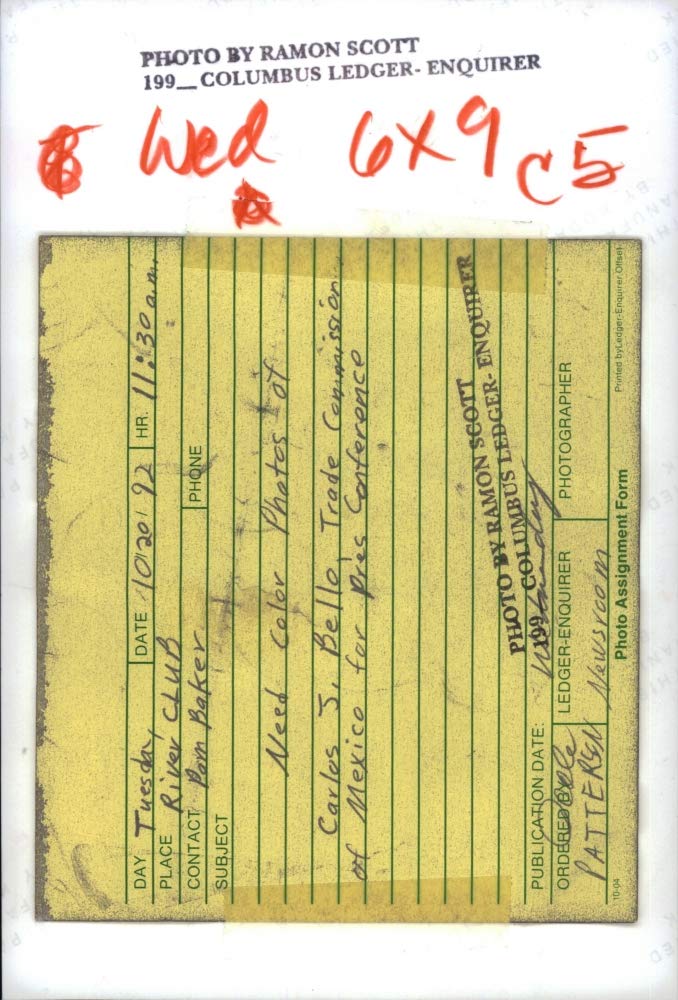 PHOTO BY RAMON SCOTT
199__ COLUMBUS LEDGER- ENQUIRER
Wed 6x9 C5
DAY Tuesday, DATE 10/20/92 HR. 11:30 a.m.
PLACE River CLUB
CONTACT Pam Baker PHONE
SUBJECT
Need Color Photos of
Carlos J. Bello, Trade Commission
of Mexico for Pres Conference
PHOTO BY RAMON SCOTT
199__ COLUMBUS LEDGER- ENQUIRER
PUBLICATION DATE: Wednesday
ORDERED BY LEDGER-ENQUIRER PHOTOGRAPHER
PATTERSEN Newsroom
10-04 Photo Assignment Form Printed by Ledger-Enquirer Offset